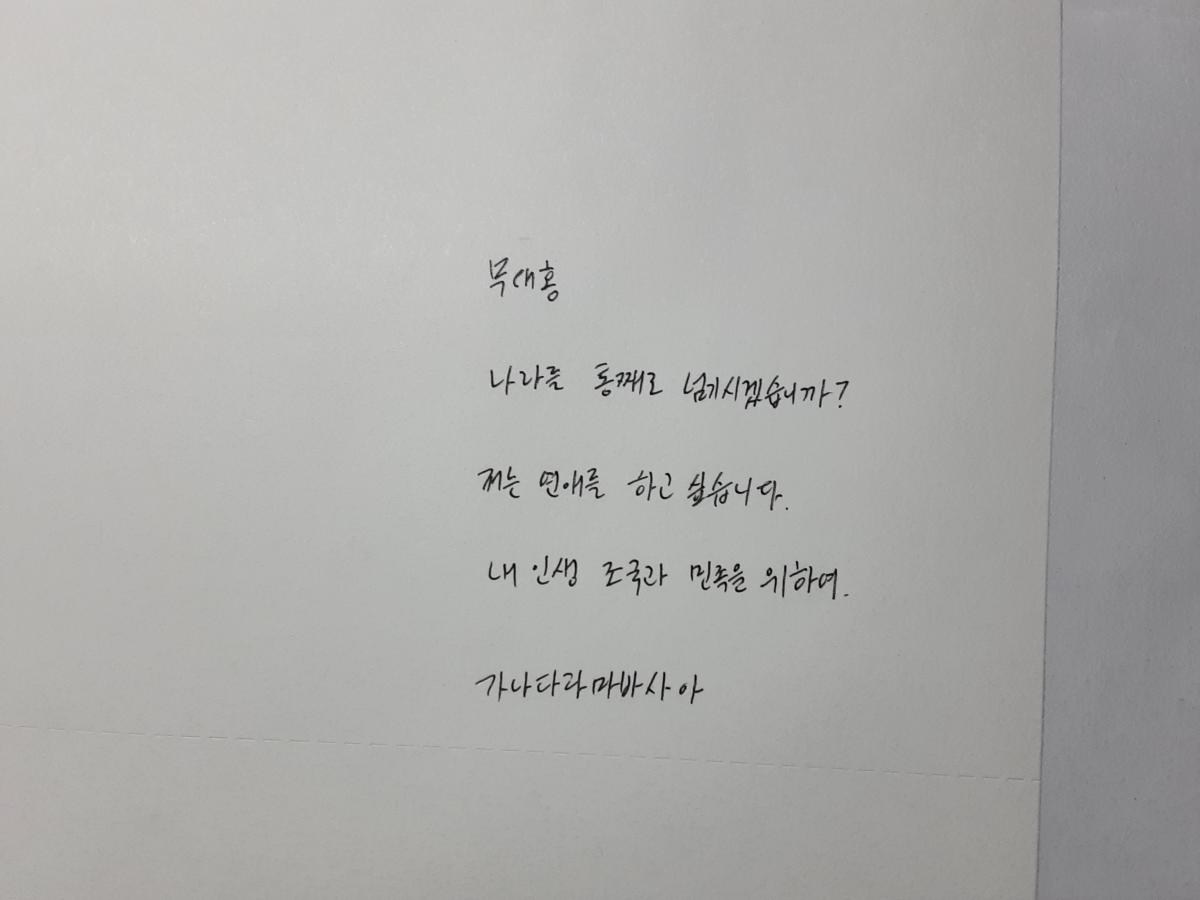 무대홍
나라를 통째로 넘기시겠습니까?
저는 연애를 하고 싶습니다.
내 인생 조국과 민족을 위하여.
가나다라마바사아